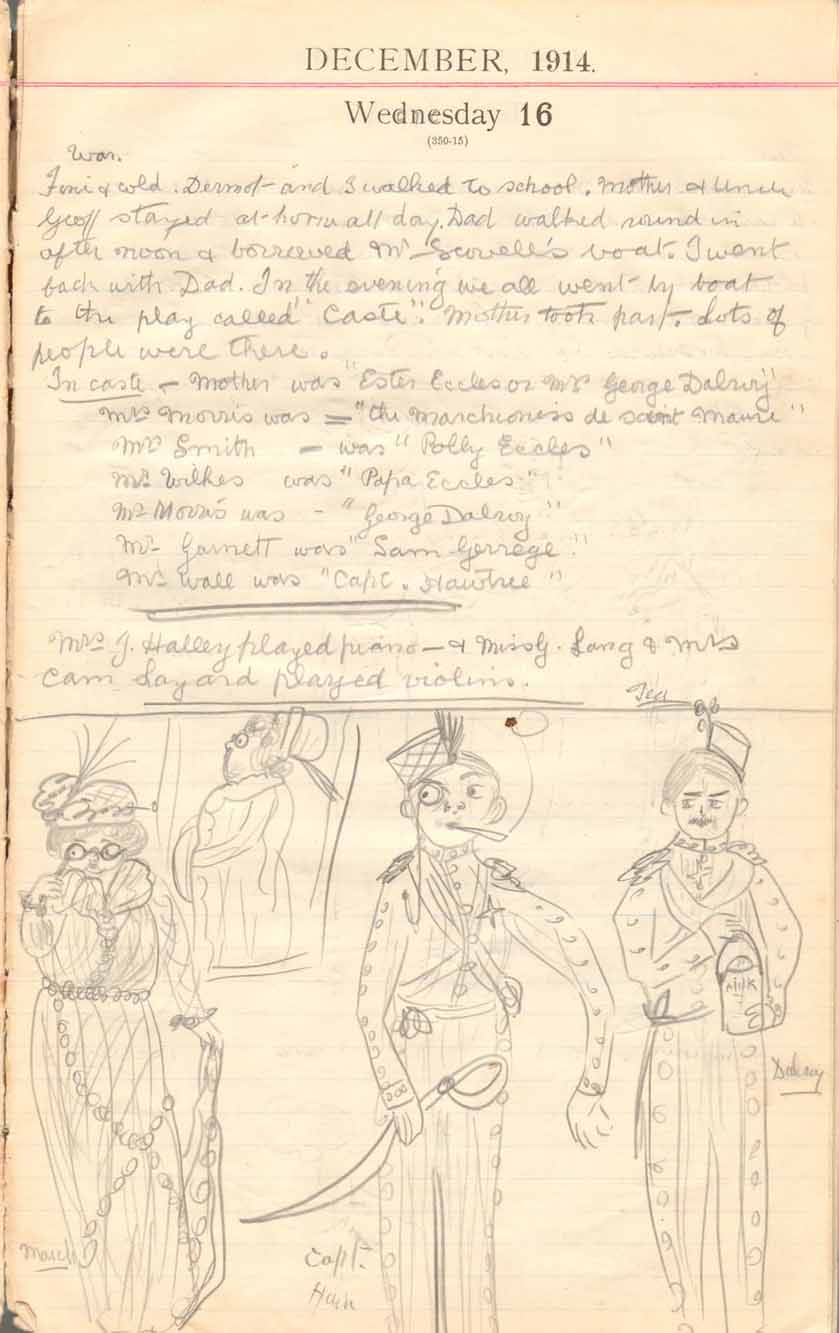 DECEMBER, 1914.
Wednesday 16
(350-15)
War.
Fine & cold. Dermot and I walked to school. Mother & Uncle
Geoff stayed at home all day. Dad walked round in
after noon & borrowed Mr Scovell's boat. I went
back with Dad. In the evening we all went by boat
to the play called "Caste". Mother took part. Lots of
people were there.
In caste – Mother was "Ester Eccles or Mrs George Dalroy"
Mrs Morris was = "the Marchioness de saint Maure"
Mrs Smith – was "Polly Eccles"
Mr Wilkes was "Papa Eccles"
Mr Morris was – "George Dalroy"
Mr Garnett was "Sam Gerrege"
Mr Wall was "Capt. Hawtree"
Mrs J. Halley played piano – & Miss G. Lang & Mrs
Cam Layard played violins.
Tea
milk
Dalroy
March
Capt.